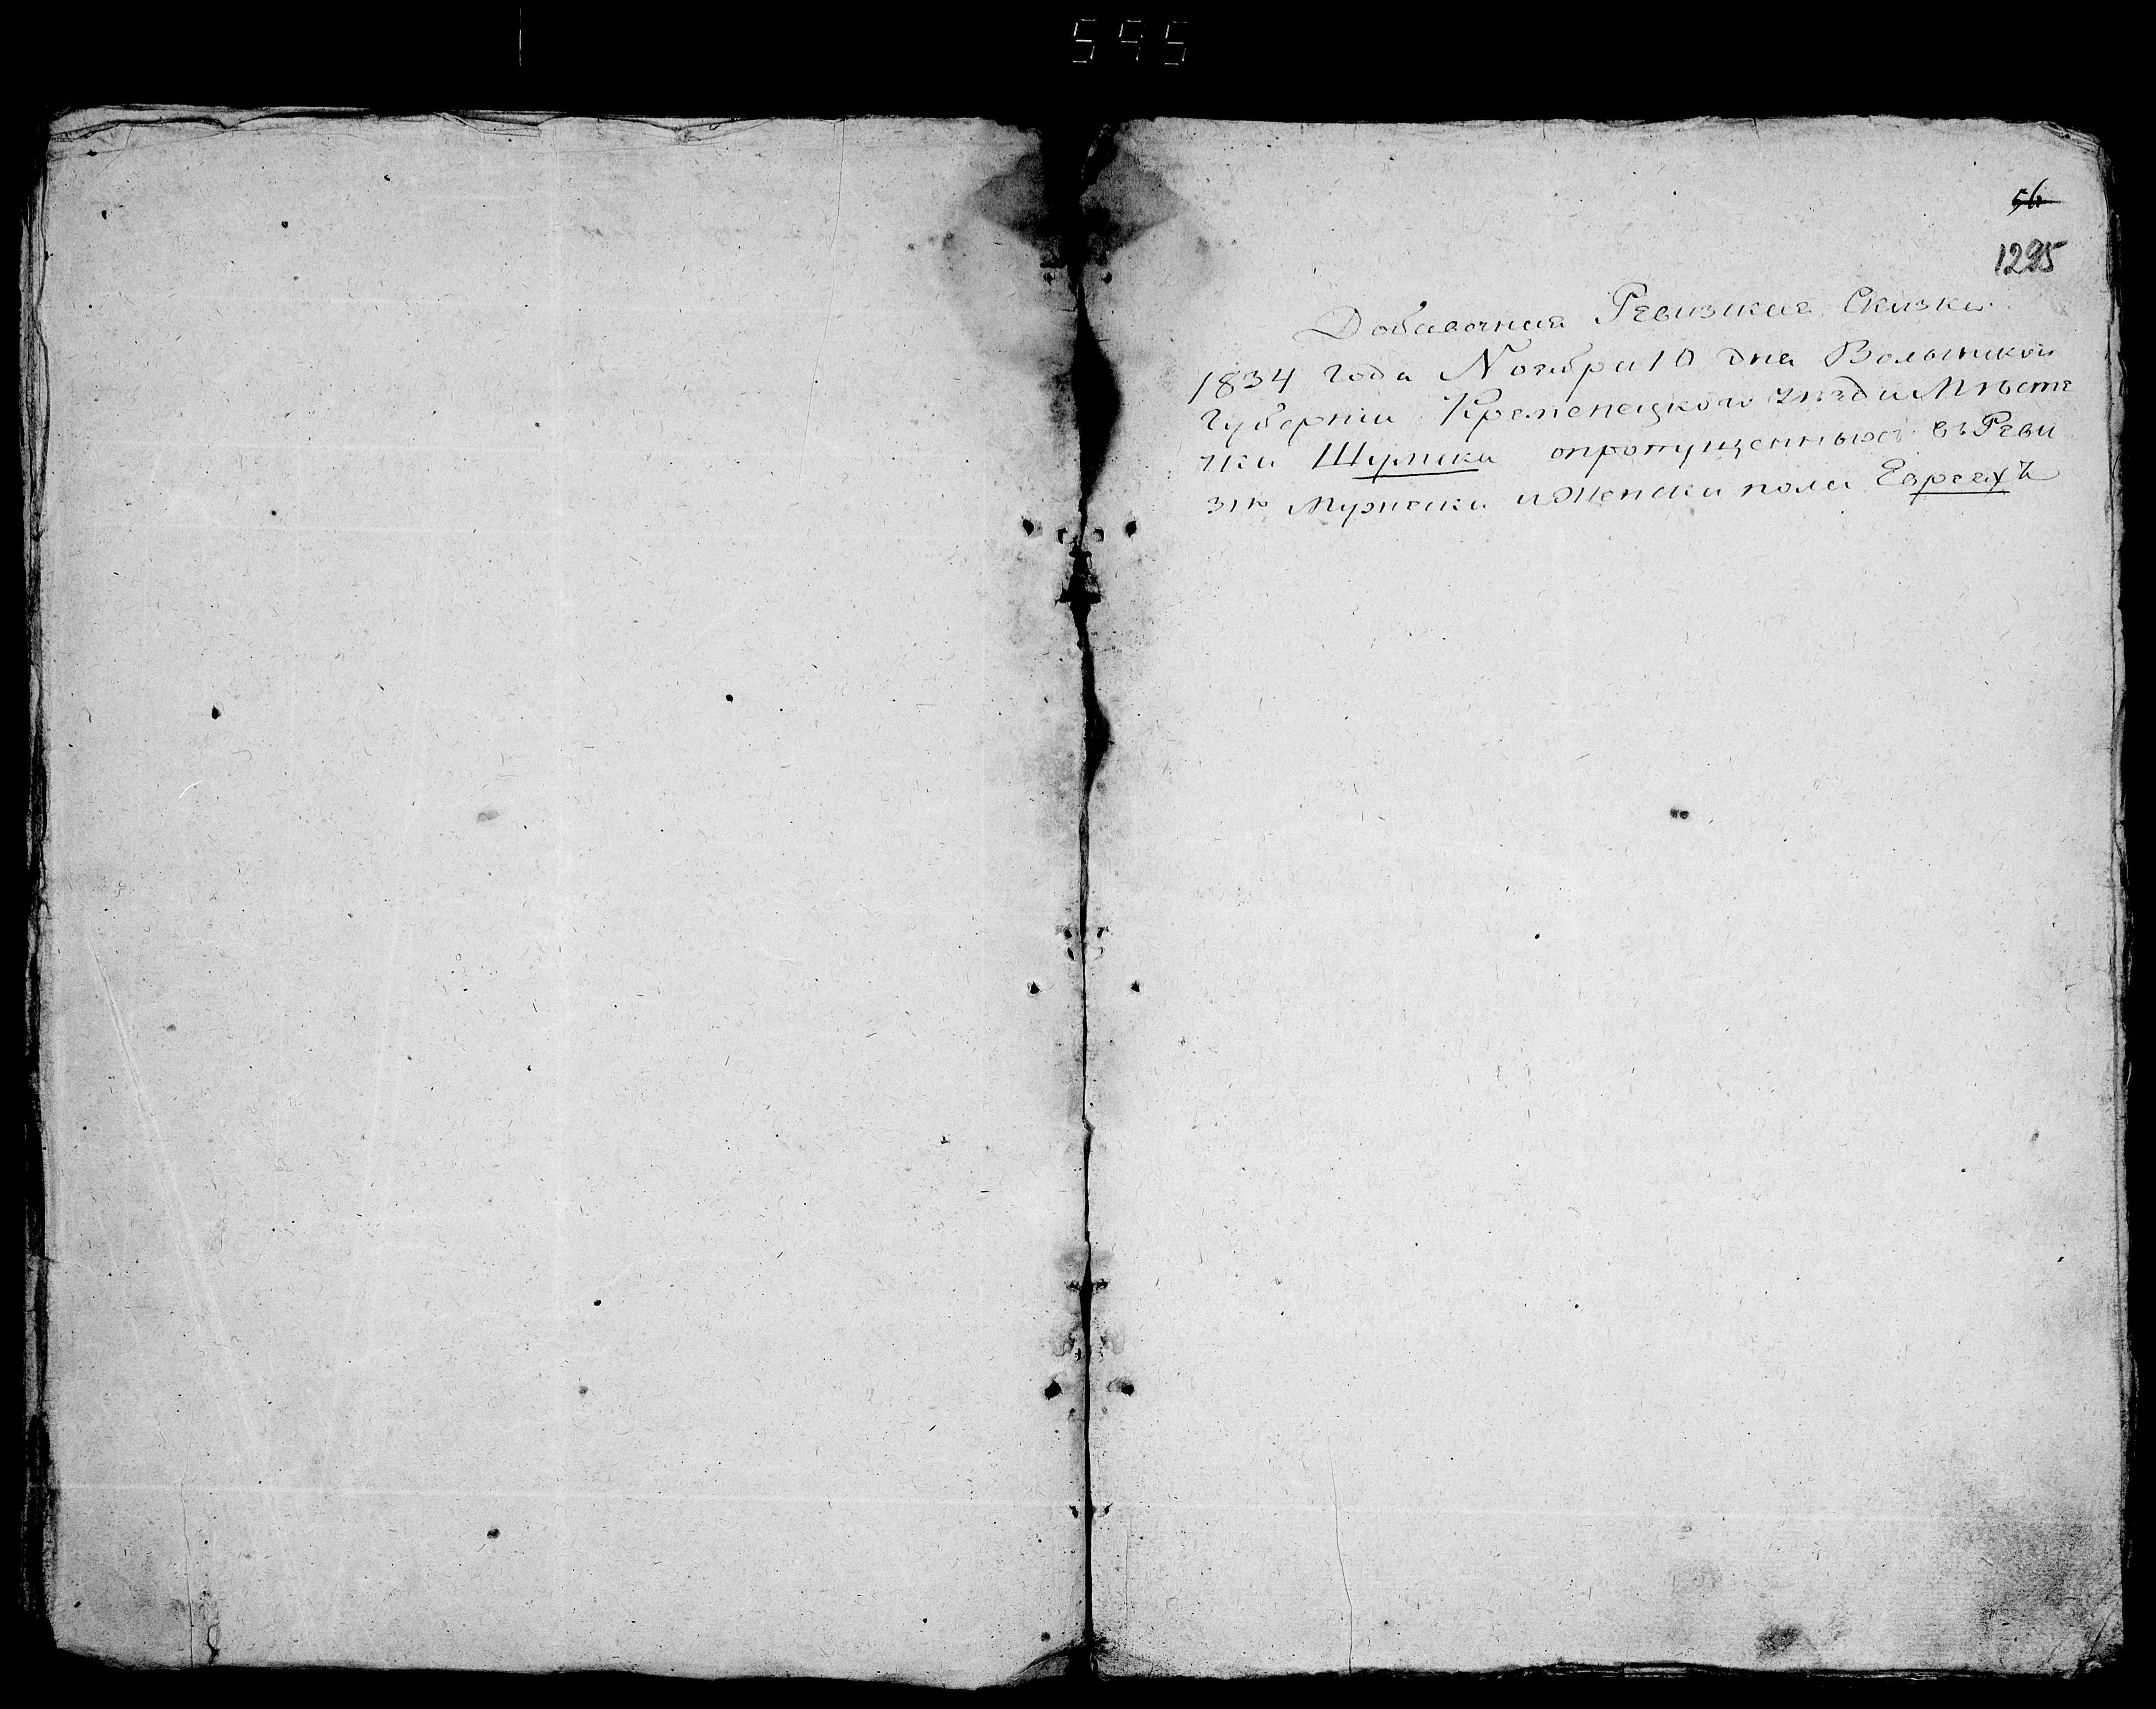 595
56
1295
Добавочная Ревизкая Сказка
1834 года Ноября 10 дня Волынской
Губернии Кременецкого уезда Мѣсте
чка Шумска опропущенныхъ въ Реви
зiю Мужеска и Женска пола Евреяхъ